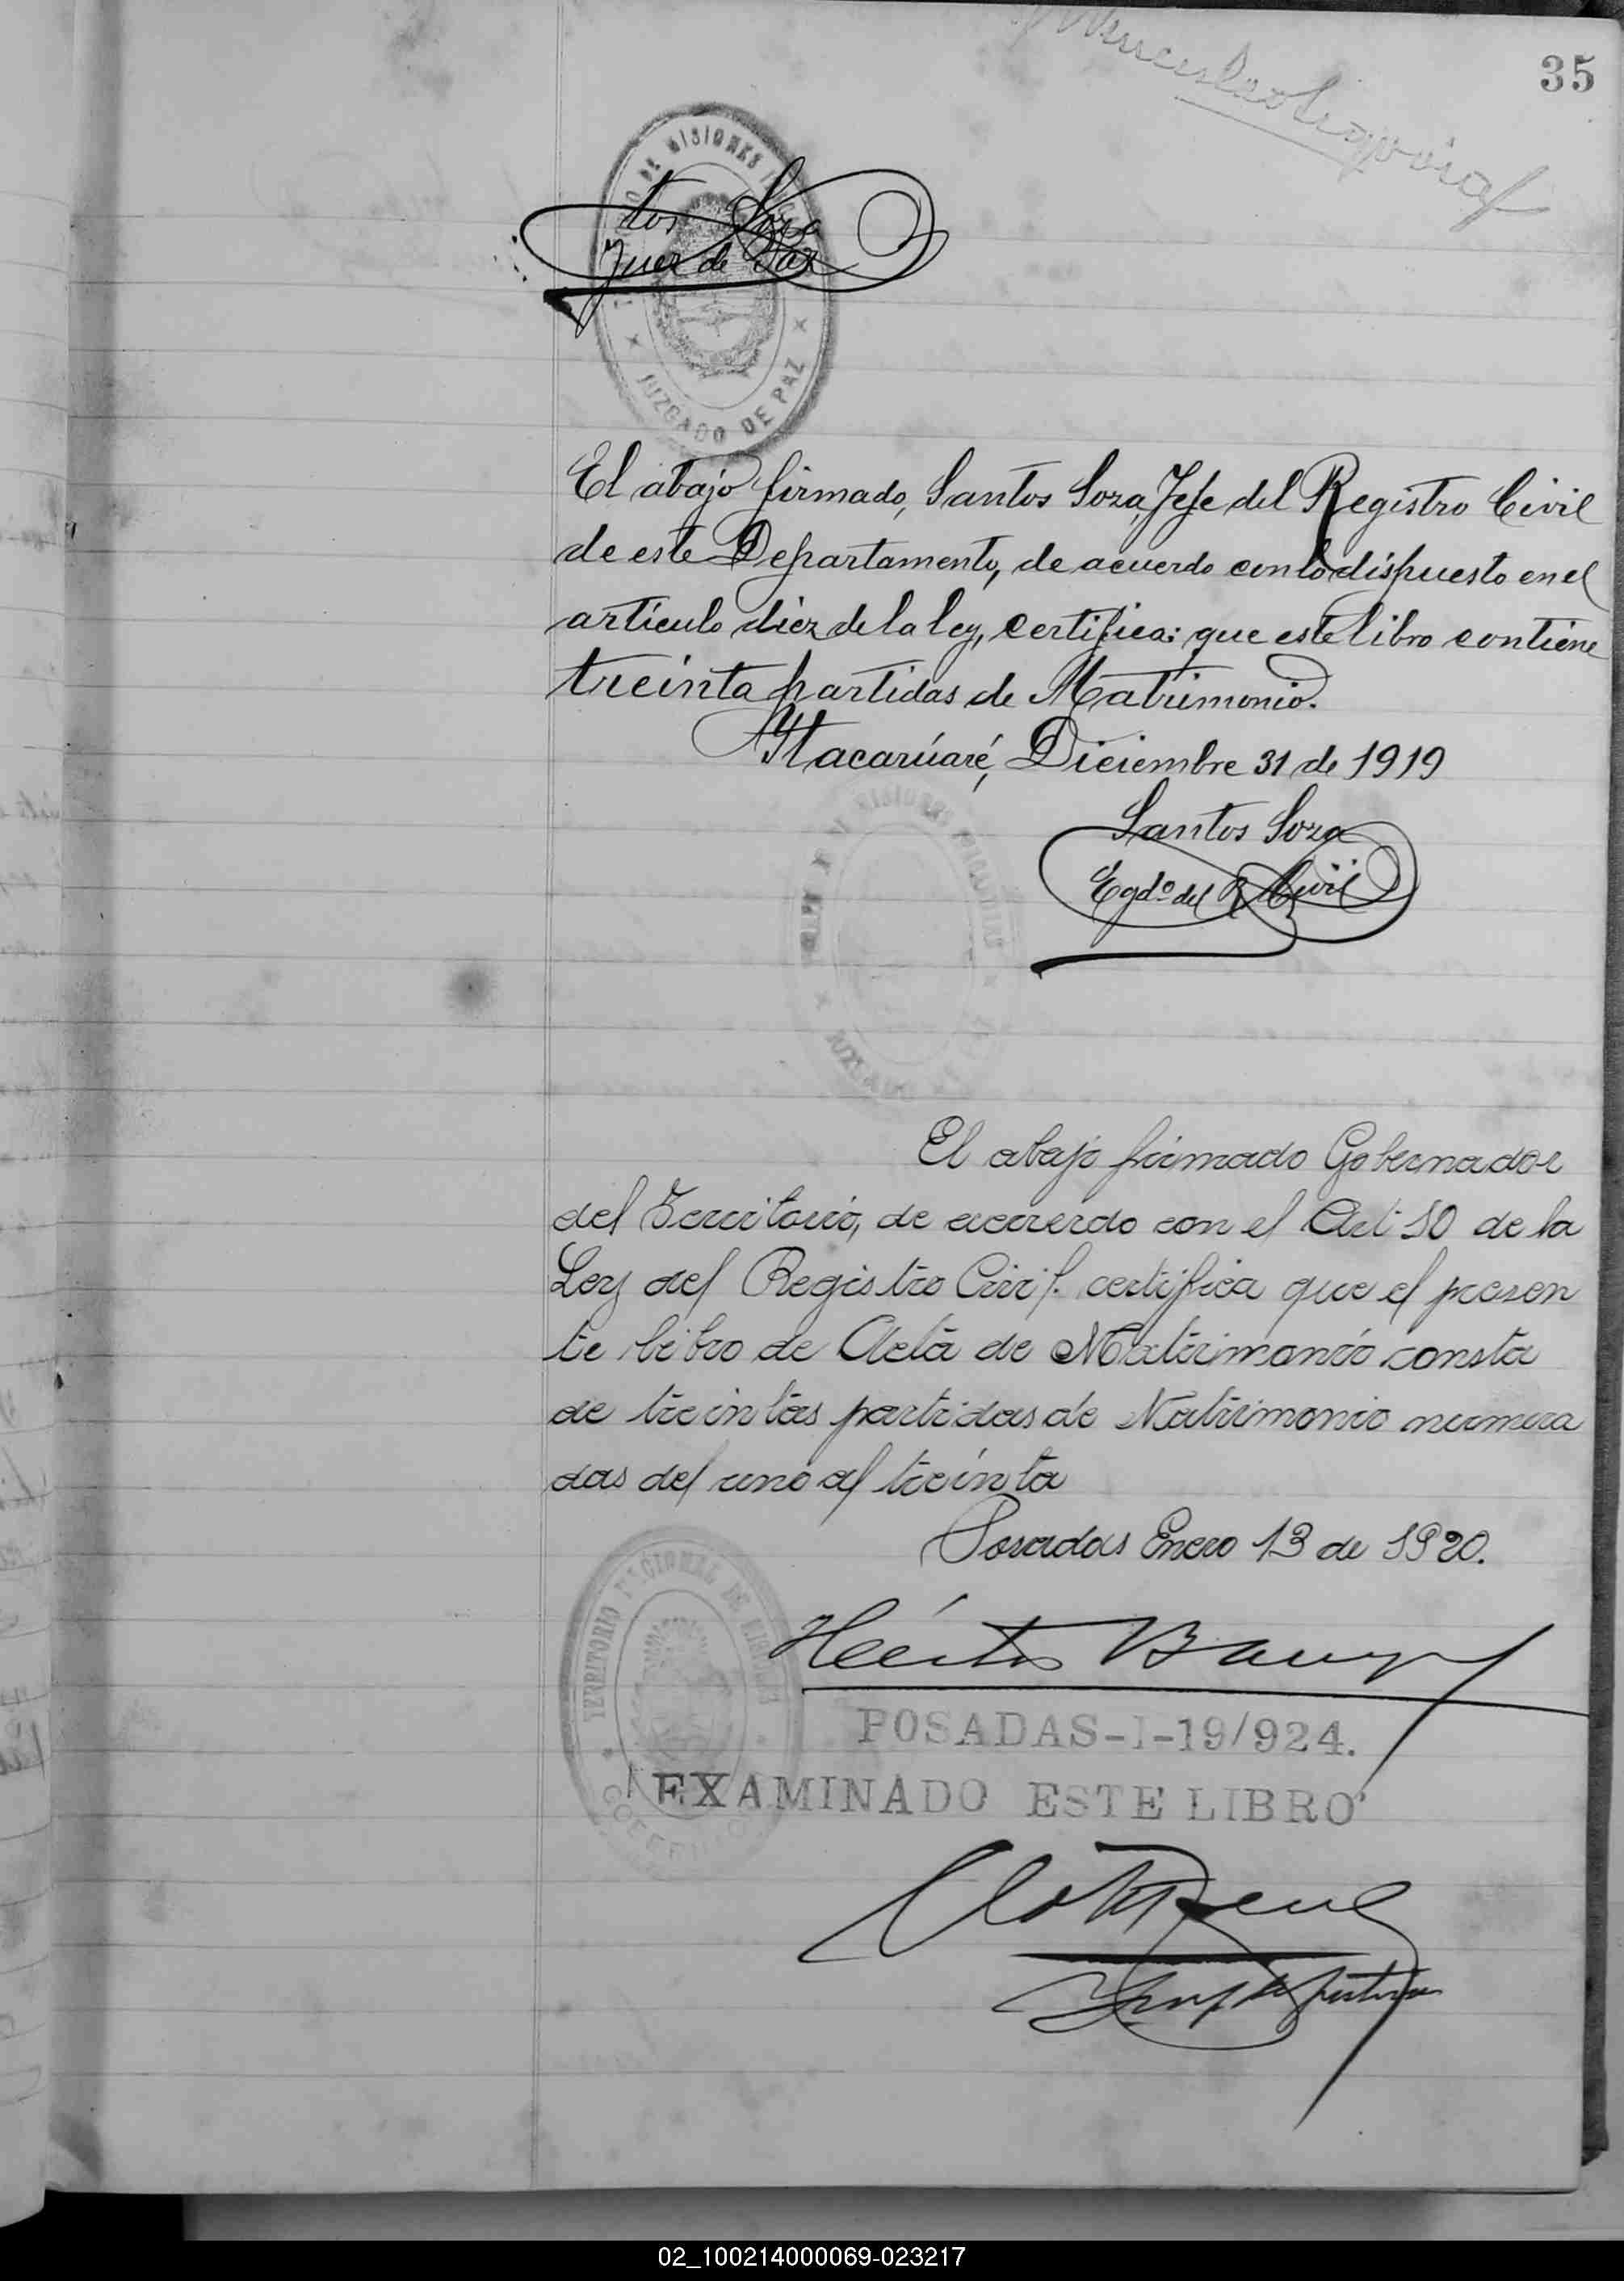 35
tos Soza
Juez de Paz
JUZGADO DE PAZ
El abajo firmado, Santos Soza, Jefe del Registro Civil
de este Departamento, de acuerdo con lo dispuesto en el
artículo diez de la ley, certifica: que este libro contiene
treinta partidas de Matrimonio.
Itacarúaré, Diciembre 31 de 1919
Santos Soza
Egdo del R Civil
El abajo firmado Gobernador
del Territorio, de acuerdo con el Art 10 de la
Ley del Registro Civil. certifica que el presen
te libro de Acta de Matrimonio consta
de treintas partidas de Matrimonio numera
das del uno al treinta
Posadas Enero 13 de 1920.
TERRITORIO NACIONAL DE MISIONES
Héctor
POSADAS-I-19/924.
EXAMINADO ESTE LIBRO
02_100214000069-023217